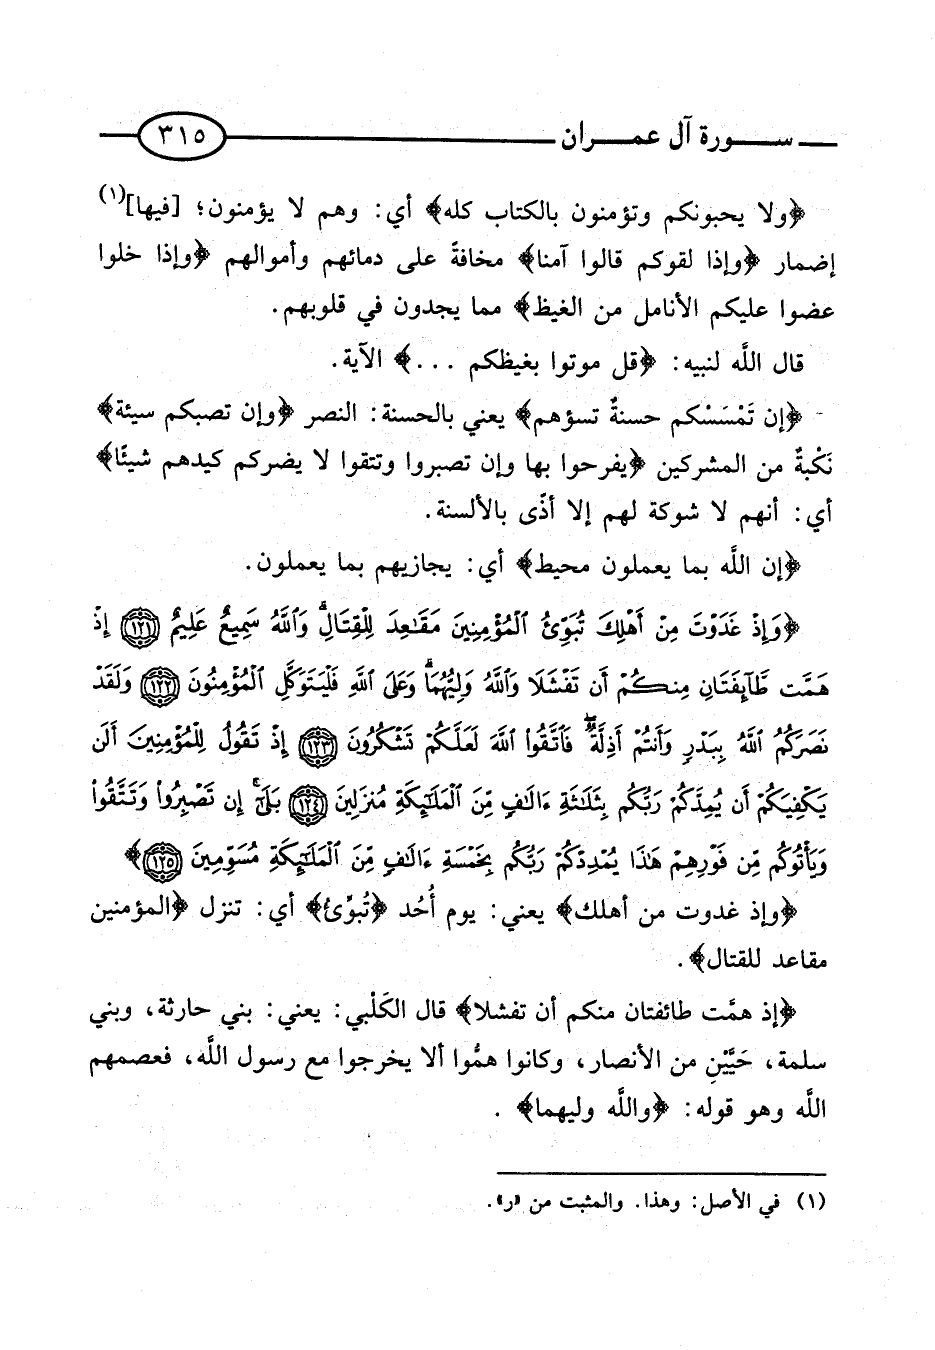 سورة آل عمران ٣١٥
﴿ولا يحبونكم وتؤمنون بالكتاب كله﴾ أي: وهم لا يؤمنون؛ [فيها](١)
إضمار ﴿وإذا لقوكم قالوا آمنا﴾ مخافةً على دمائهم وأموالهم ﴿وإذا خلوا
عضوا عليكم الأنامل من الغيظ﴾ مما يجدون في قلوبهم.
قال اللَّه لنبيه: ﴿قل موتوا بغيظكم ...﴾ الآية.
﴿إن تَمْسَسْكم حسنةٌ تسؤهم﴾ يعني بالحسنة: النصر ﴿وإن تصبكم سيئة﴾
نَكْبةٌ من المشركين ﴿يفرحوا بها وإن تصبروا وتتقوا لا يضركم كيدهم شيئًا﴾
أي: أنهم لا شوكة لهم إلا أذًى بالألسنة.
﴿إن اللَّه بما يعملون محيط﴾ أي: يجازيهم بما يعملون.
﴿وَإِذْ غَدَوْتَ مِنْ أَهْلِكَ تُبَوِّئُ ٱلْمُؤْمِنِينَ مَقَٰعِدَ لِلْقِتَالِۗ وَٱللَّهُ سَمِيعٌ عَلِيمٌ ١٢١ إِذْ
هَمَّت طَّآئِفَتَانِ مِنكُمْ أَن تَفْشَلَا وَٱللَّهُ وَلِيُّهُمَاۗ وَعَلَى ٱللَّهِ فَلْيَتَوَكَّلِ ٱلْمُؤْمِنُونَ ١٢٢ وَلَقَدْ
نَصَرَكُمُ ٱللَّهُ بِبَدْرٍ وَأَنتُمْ أَذِلَّةٌۖ فَٱتَّقُوا۟ ٱللَّهَ لَعَلَّكُمْ تَشْكُرُونَ ١٢٣ إِذْ تَقُولُ لِلْمُؤْمِنِينَ أَلَن
يَكْفِيَكُمْ أَن يُمِدَّكُمْ رَبُّكُم بِثَلَٰثَةِ ءَالَٰفٍ مِّنَ ٱلْمَلَٰٓئِكَةِ مُنزَلِينَ ١٢٤ بَلَىٰٓۚ إِن تَصْبِرُوا۟ وَتَتَّقُوا۟
وَيَأْتُوكُم مِّن فَوْرِهِمْ هَٰذَا يُمْدِدْكُمْ رَبُّكُم بِخَمْسَةِ ءَالَٰفٍ مِّنَ ٱلْمَلَٰٓئِكَةِ مُسَوِّمِينَ ١٢٥﴾
﴿وإذ غدوت من أهلك﴾ يعني: يوم أُحُد ﴿تُبوِّئ﴾ أي: تنزل ﴿المؤمنين
مقاعد للقتال﴾.
﴿إذ همَّت طائفتان منكم أن تفشلا﴾ قال الكَلْبي: يعني: بني حارثة، وبني
سلمة، حَيَّيْنِ من الأنصار، وكانوا همُّوا ألا يخرجوا مع رسول اللَّه، فعصمهم
اللَّه وهو قوله: ﴿واللَّه وليهما﴾.
(١) في الأصل: وهذا. والمثبت من «ر».